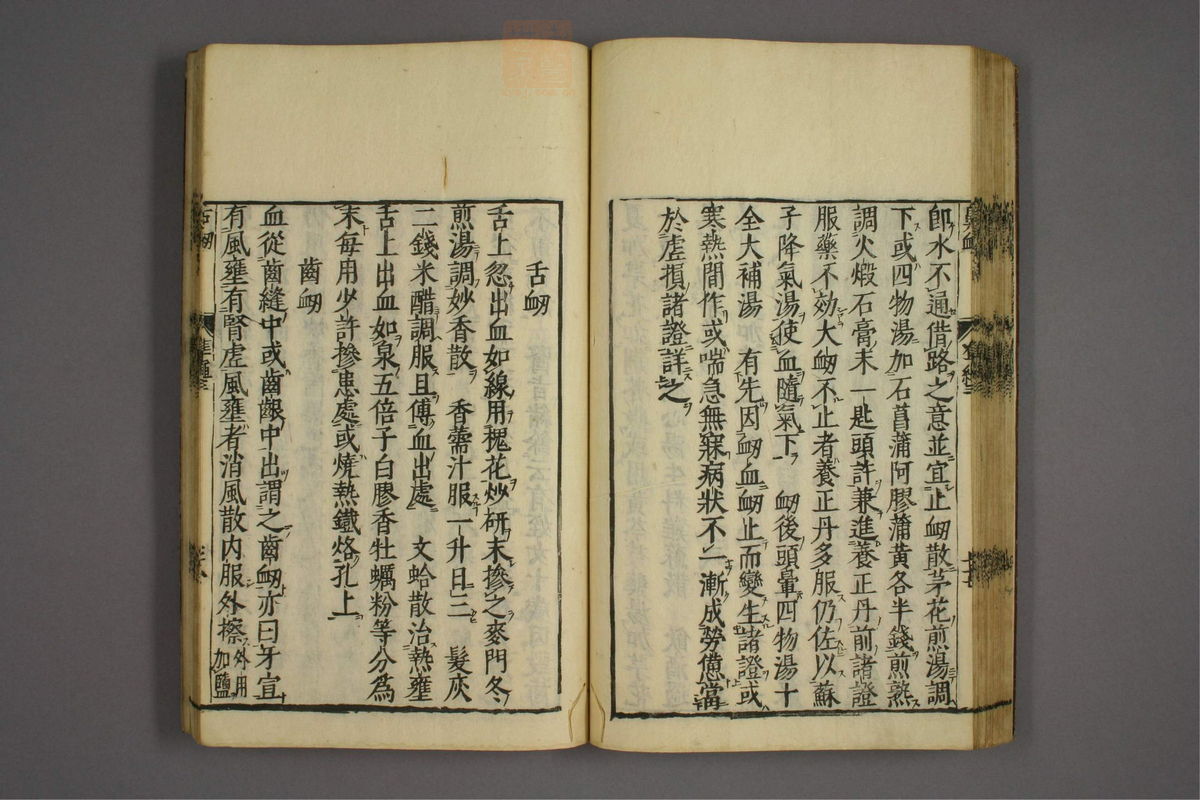 即水不通借路之意並宜止衄散茅花煎湯調
下或四物湯加石菖蒲阿膠蒲黃各半錢煎熟
調火煅石膏末一匙頭許兼進養正丹前諸證
服藥不効大衄不止者養正丹多服仍佐以蘇
子降氣湯使血隨氣下 衄後頭暈四物湯十
全大補湯 有先因衄血衄止而變生諸證或
寒熱間作或喘急無寐病狀不一漸成勞憊當
於虛損諸證詳之
舌衄
舌上忽出血如線用槐花炒研末摻之麥門冬
煎湯調妙香散 香薷汁服一升日三 髮灰
二錢米醋調服且傅血出處 文蛤散治熱壅
舌上出血如泉五倍子白膠香牡蠣粉等分為
末每用少許摻患處或燒熱鐵烙孔上
齒衄
血從齒縫中或齒齦中出謂之齒衄亦曰牙宣
有風壅有腎虛風壅者消風散內服外擦外用
加鹽